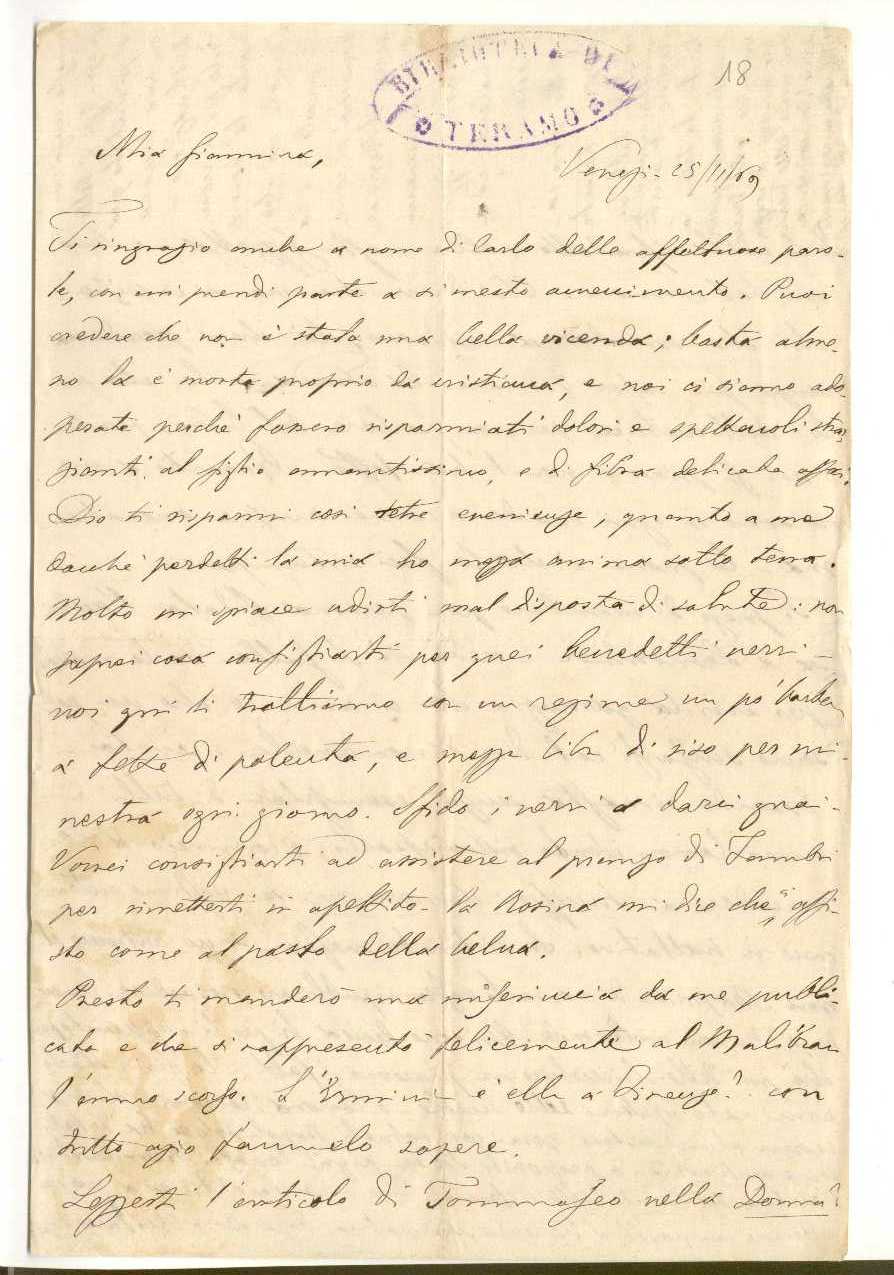 BIBLIOTECA DI
TERAMO
18
Mia Giannina,
Venezi- 25/11/69
Ti ringrazio anche a nome di Carlo delle affettuose paro-
le, con cui prendi parte a sì mesto avvenimento. Puoi
credere che non è stata una bella vicenda; basta alme-
no la è morta proprio da cristiana, e noi ci siamo ado-
perate perchè fossero risparmiati dolori e spettacoli stra-
zianti al figlio amantissimo, e di fibra delicata assai.
Dio ti risparmi così tetre evenienze, quanto a me
dacchè perdetti la mia ho mezza anima sotto terra.
Molto mi spiace udirti mal disposta di salute: non
saprei cosa consigliarti per quei benedetti nervi-
noi qui li trattiamo con un regime un po'
a fette di polenta, e mezza libr di riso per mi
nestra ogni giorno. Sfido i nervi a darci guai-
Vorrei consigliarti ad assistere al pranzo di Fambri
per rimetterti in apettito- la Rosina mi dice che "assi-
sto come al pasto della belva.
Presto ti manderò una da me pubbli-
cata e che si rappresentò felicemente al Malibran
l'anno scorso. L'Erminia è ella a Firenze? con
tutto agio fammelo sapere.
Leggesti l'articolo di Tommaseo nella Donna?